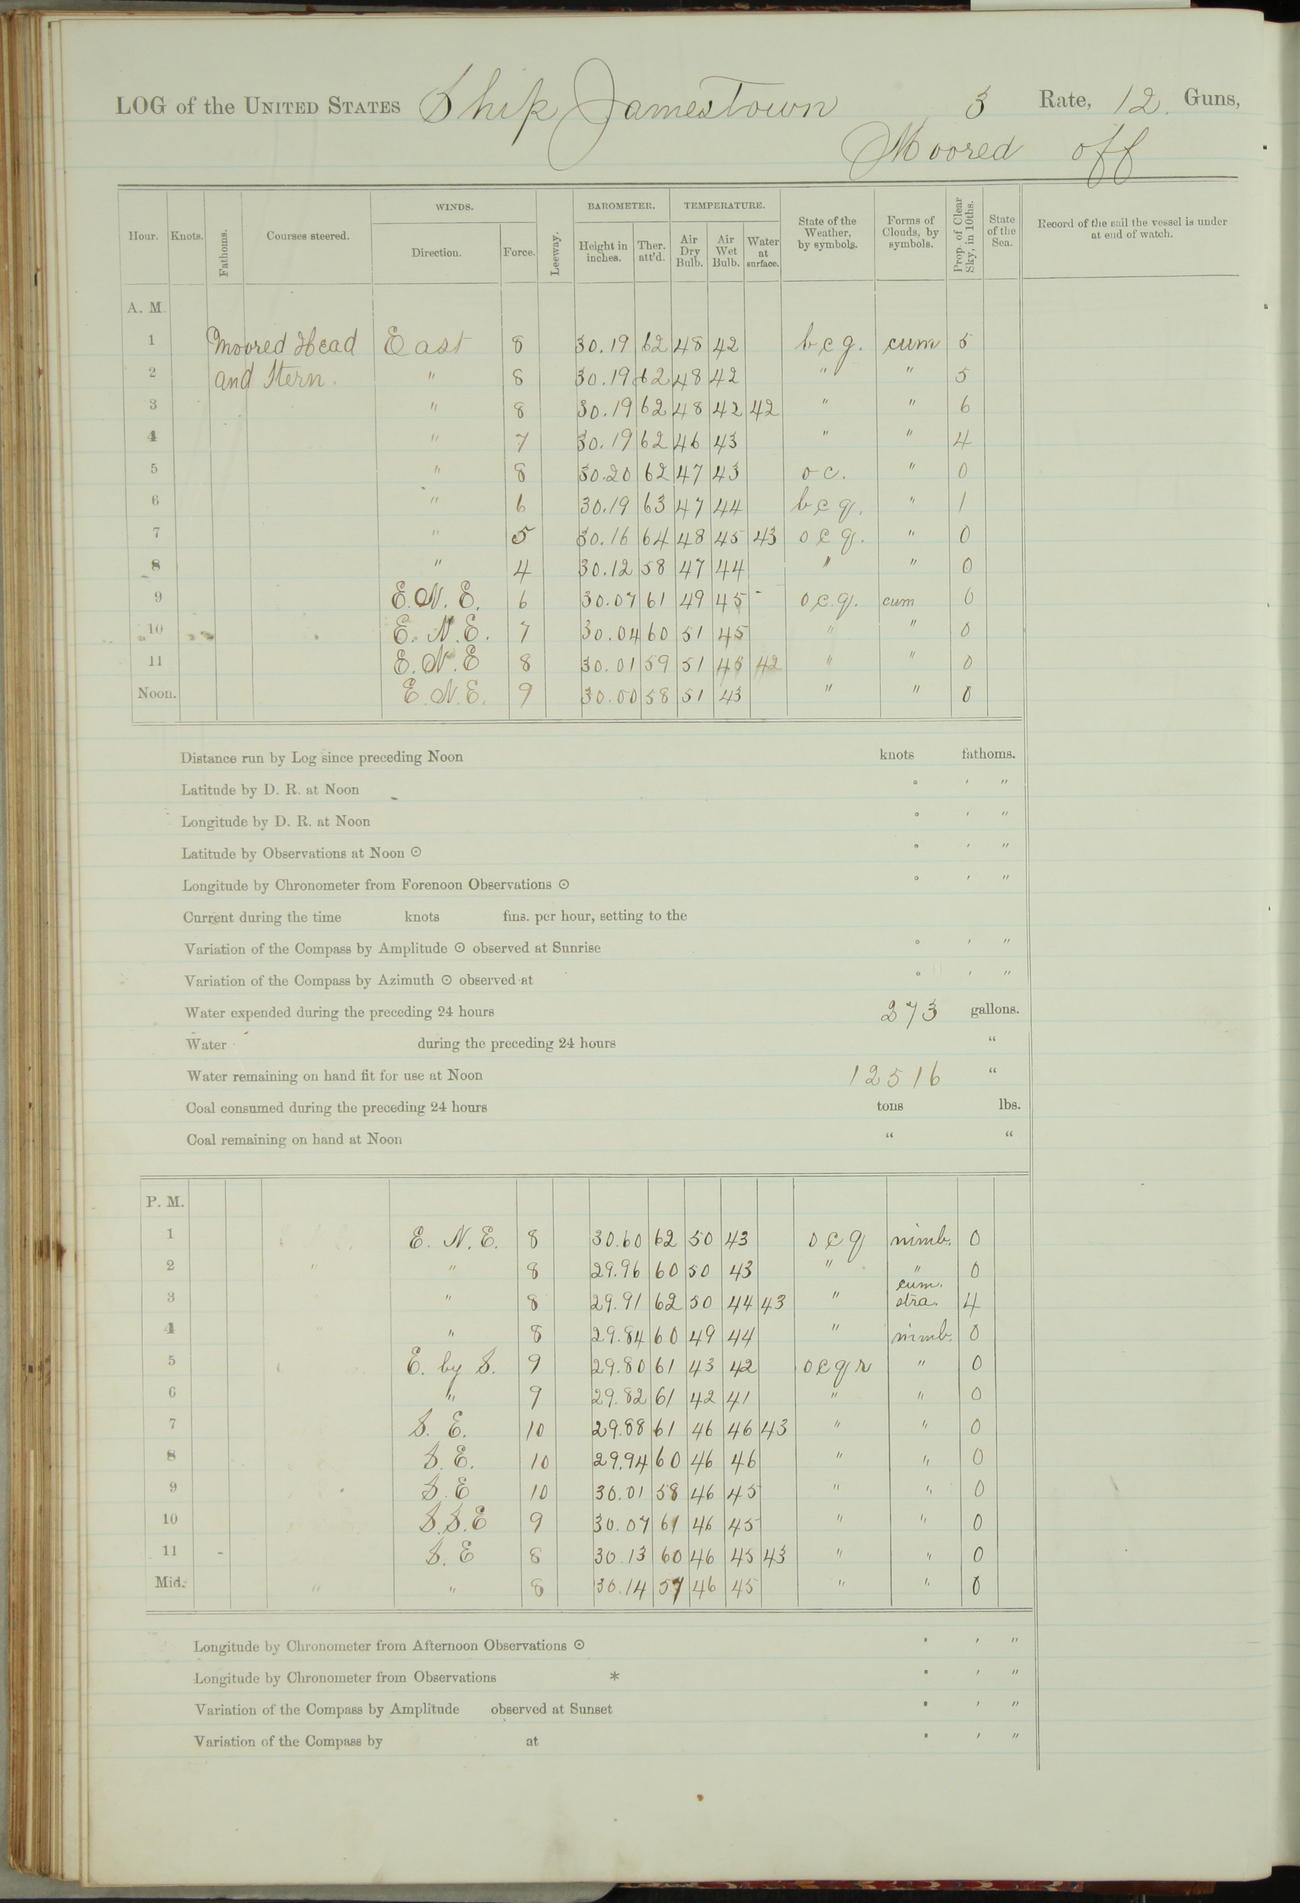 LOG of the UNITED STATES Ship Jamestown 3 Rate, 12. Guns,
Moored off
Hour. Knots. Fathoms. Courses steered. WINDS. Direction. Force. Leeway. BAROMETER. Height in inches. Ther. att'd. TEMPERATURE. Air Dry Bulb. Air Wet Bulb. Water at surface. State of the Weather, by symbols. Forms of Clouds, by symbols. Prop. of Clear Sky, in 10ths. State of the Sea. Record of the sail the vessel is under at end of watch.
A. M.
1 Moored Head East 8 30.19 62 48 42 b c q. cum 5
2 and Stern. " 8 30.19 62 48 42 " " 5
3 " 8 30.19 62 48 42 42 " " 6
4 " 7 30.19 62 46 43 " " 4
5 " 8 30.20 62 47 43 o c. " 0
6 " 6 30.19 63 47 44 b c q. " 1
7 " 5 30.16 64 48 45 43 o c q. " 0
8 " 4 30.12 58 47 44 " " 0
9 E. N. E. 6 30.07 61 49 45 - o c. q. cum 0
10 E. N. E. 7 30.04 60 51 45 " " 0
11 E. N. E 8 30.01 59 51 45 42 " " 0
Noon. E. N. E. 9 30.00 58 51 43 " " 0
Distance run by Log since preceding Noon knots fathoms.
Latitude by D. R. at Noon ° ′ ″
Longitude by D. R. at Noon ° ′ ″
Latitude by Observations at Noon ⊙ ° ′ ″
Longitude by Chronometer from Forenoon Observations ⊙ ° ′ ″
Current during the time knots fms. per hour, setting to the
Variation of the Compass by Amplitude ⊙ observed at Sunrise ° ′ ″
Variation of the Compass by Azimuth ⊙ observed at ° ′ ″
Water expended during the preceding 24 hours 273 gallons.
Water during the preceding 24 hours "
Water remaining on hand fit for use at Noon 12516 "
Coal consumed during the preceding 24 hours tons lbs.
Coal remaining on hand at Noon " "
P. M.
1 E. N. E. 8 30.60 62 50 43 o c q nimb. 0
2 " " 8 29.96 60 50 43 " " 0
3 " 8 29.91 62 50 44 43 " cum. stra. 4
4 " 8 29.84 60 49 44 " nimb. 0
5 E. by S. 9 29.80 61 43 42 o c q r " 0
6 " 9 29.82 61 42 41 " " 0
7 S. E. 10 29.88 61 46 46 43 " " 0
8 S. E. 10 29.94 60 46 46 " " 0
9 S. E 10 30.01 58 46 45 " " 0
10 S.S.E 9 30.07 61 46 45 " " 0
11 S. E 8 30.13 60 46 45 43 " " 0
Mid. " " 8 30.14 57 46 45 " " 0
Longitude by Chronometer from Afternoon Observations ⊙ ° ′ ″
Longitude by Chronometer from Observations * ° ′ ″
Variation of the Compass by Amplitude observed at Sunset ° ′ ″
Variation of the Compass by at ° ′ ″